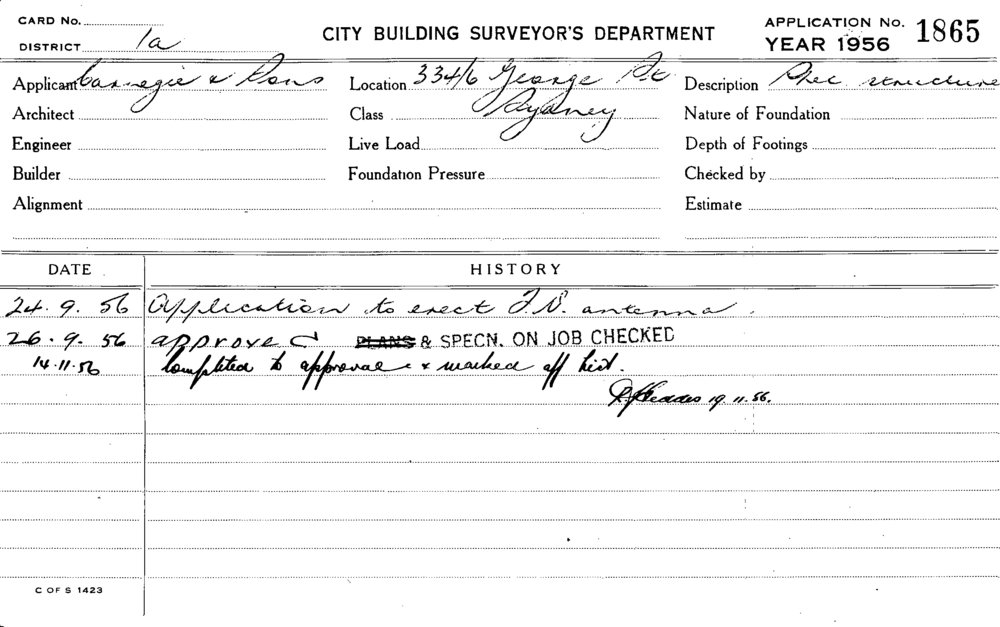 CARD No.
DISTRICT 1a
CITY BUILDING SURVEYOR'S DEPARTMENT
APPLICATION No. 1865
YEAR 1956
Applicant Carnegie & Sons Location 334/6 George St Description Spec. structure
Architect Class Sydney Nature of Foundation
Engineer Live Load Depth of Footings
Builder Foundation Pressure Checked by
Alignment Estimate
DATE HISTORY
24. 9. 56 Application to erect T.V. antenna.
26. 9. 56 approved PLANS & SPECN. ON JOB CHECKED
14.11.56 Completed to approval & marked off list.
19.11.56.
C OF S 1423